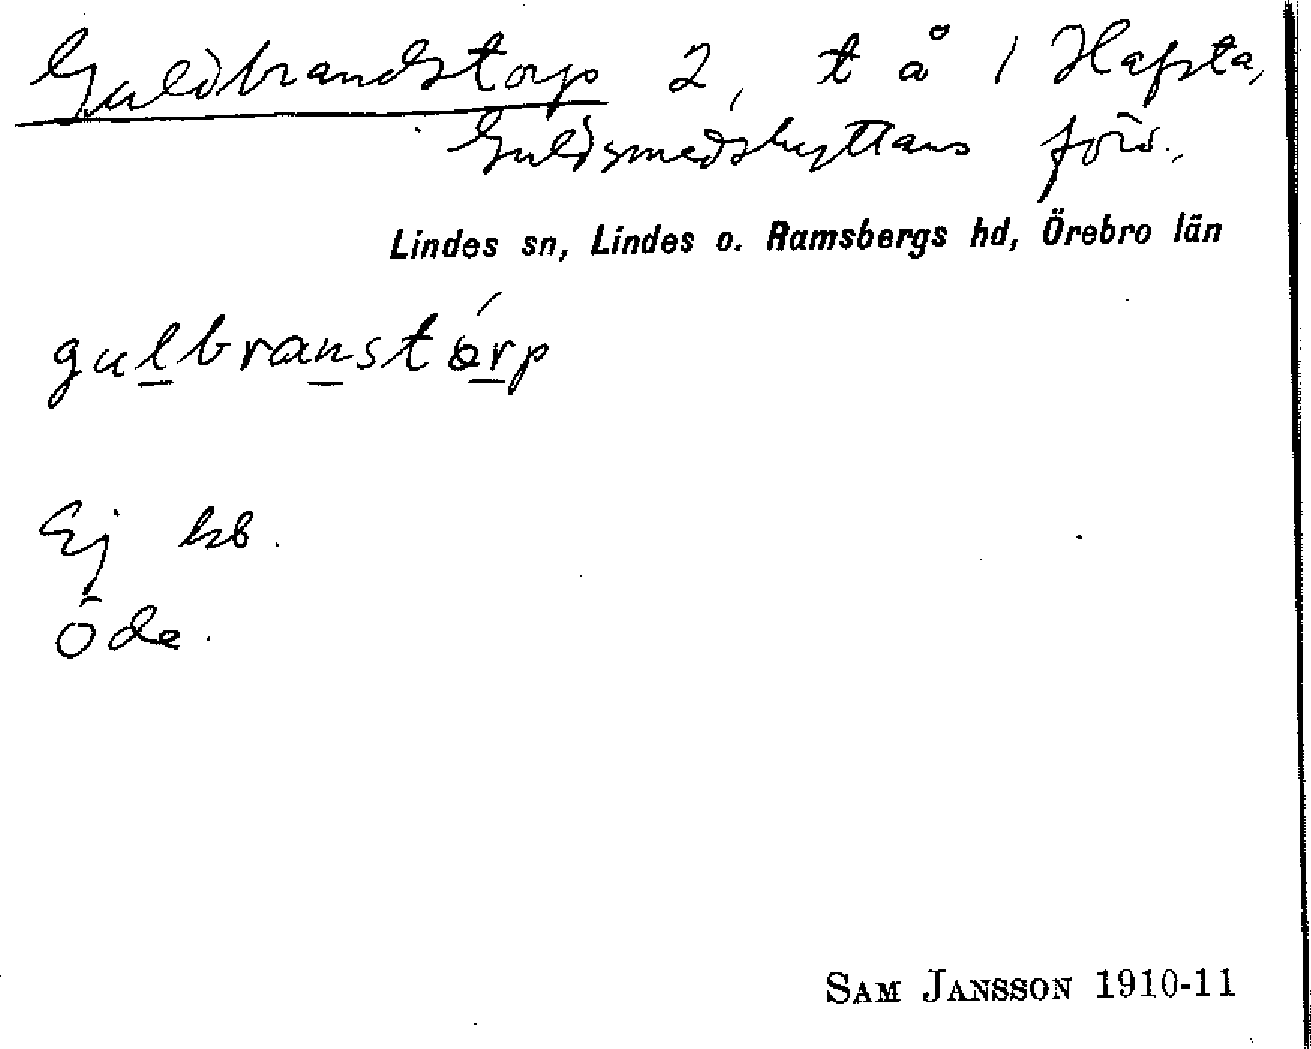 Guldbrandstorp 2, t å 1 Hafsta,
Guldsmedshyttans förs.,
Lindes sn, Lindes o. Ramsbergs hd, Örebro län
gulbranstórp
Ej kb.
Öde.
SAM JANSSON 1910-11